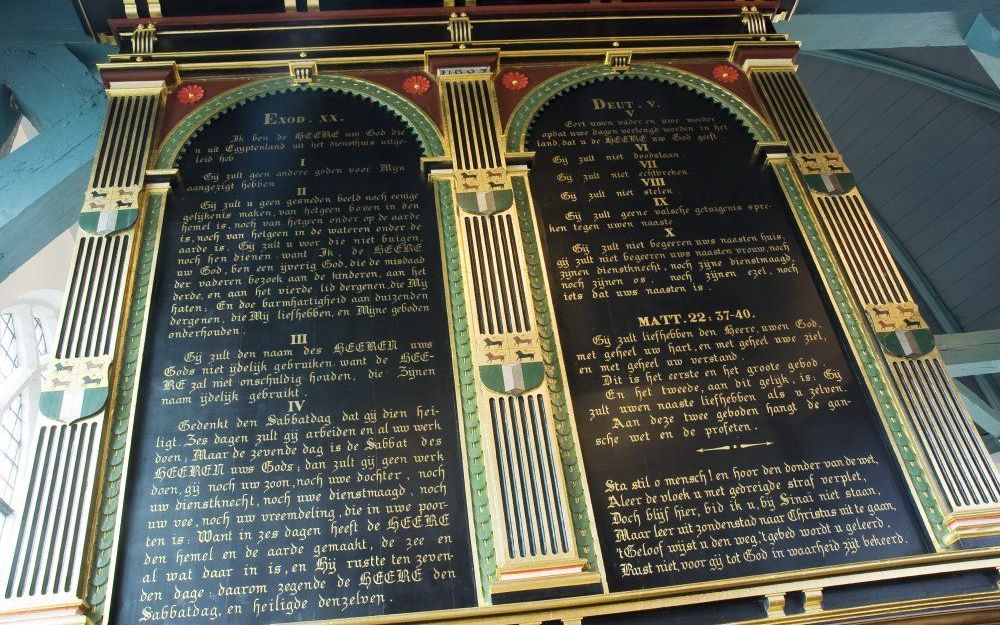 1697
EXOD. XX.
Ik ben de HEERE uw God die
u uit Egyptenland uit het diensthuis uitge-
leid heb
I
Gij zult geen andere goden voor Mijn
aangezigt hebben.
II
Gij zult u geen gesneden beeld noch eenige
gelijkenis maken, van hetgeen boven in den
hemel is, noch van hetgeen onder op de aarde
is, noch van hetgeen in de wateren onder de
aarde is. Gij zult u voor die niet buigen,
noch hen dienen: want Ik, de HEERE
uw God, ben een ijverig God, die de misdaad
der vaderen bezoek aan de kinderen, aan het
derde, en aan het vierde lid dergenen, die Mij
haten; En doe barmhartigheid aan duizenden
dergenen, die Mij liefhebben, en Mijne geboden
onderhouden.
III
Gij zult den naam des HEEREN uws
Gods niet ijdelijk gebruiken, want de HEE-
RE zal niet onschuldig houden, die Zijnen
naam ijdelijk gebruikt.
IV
Gedenkt den Sabbatdag dat gij dien hei-
ligt. Zes dagen zult gij arbeiden en al uw werk
doen; Maar de zevende dag is de Sabbat des
HEEREN uws Gods; dan zult gij geen werk
doen, gij noch uw zoon, noch uwe dochter, noch
uw dienstknecht, noch uwe dienstmaagd, noch
uw vee, noch uw vreemdeling, die in uwe poor-
ten is: Want in zes dagen heeft de HEERE
den hemel en de aarde gemaakt, de zee en
al wat daar in is, en Hij rustte ten zeven-
den dage: daarom zegende de HEERE den
Sabbatdag, en heiligde denzelven.
DEUT. V.
V
Eert uwen vader en uwe moeder
opdat uwe dagen verlengd worden in het
land, dat u de HEERE uw God geeft.
VI
Gij zult niet doodslaan.
VII
Gij zult niet echtbreken.
VIII
Gij zult niet stelen.
IX
Gij zult geene valsche getuigenis spre-
ken tegen uwen naaste
X
Gij zult niet begeeren uws naasten huis,
gij zult niet begeeren uws naasten vrouw, noch
zijnen dienstknecht, noch zijne dienstmaagd,
noch zijnen os, noch zijnen ezel, noch
iets dat uws naasten is.
MATT. 22: 37-40.
Gij zult liefhebben den Heere, uwen God,
met geheel uw hart, en met geheel uwe ziel,
en met geheel uw verstand.
Dit is het eerste en het groote gebod
En het tweede, aan dit gelijk, is, Gij
zult uwen naaste liefhebben als u zelven.
Aan deze twee geboden hangt de gan-
sche wet en de profeten.
Sta stil o mensch! en hoor den donder van de wet,
Aleer de vloek u met gedreigde straf verplet,
Doch blijf hier, bid ik u, bij Sinai niet staan,
Maar leer uit zondenstad naar Christus uit te gaan,
't Geloof wijst u den weg, 't gebed wordt u geleerd,
Rust niet, voor gij tot God in waarheid zijt bekeerd.